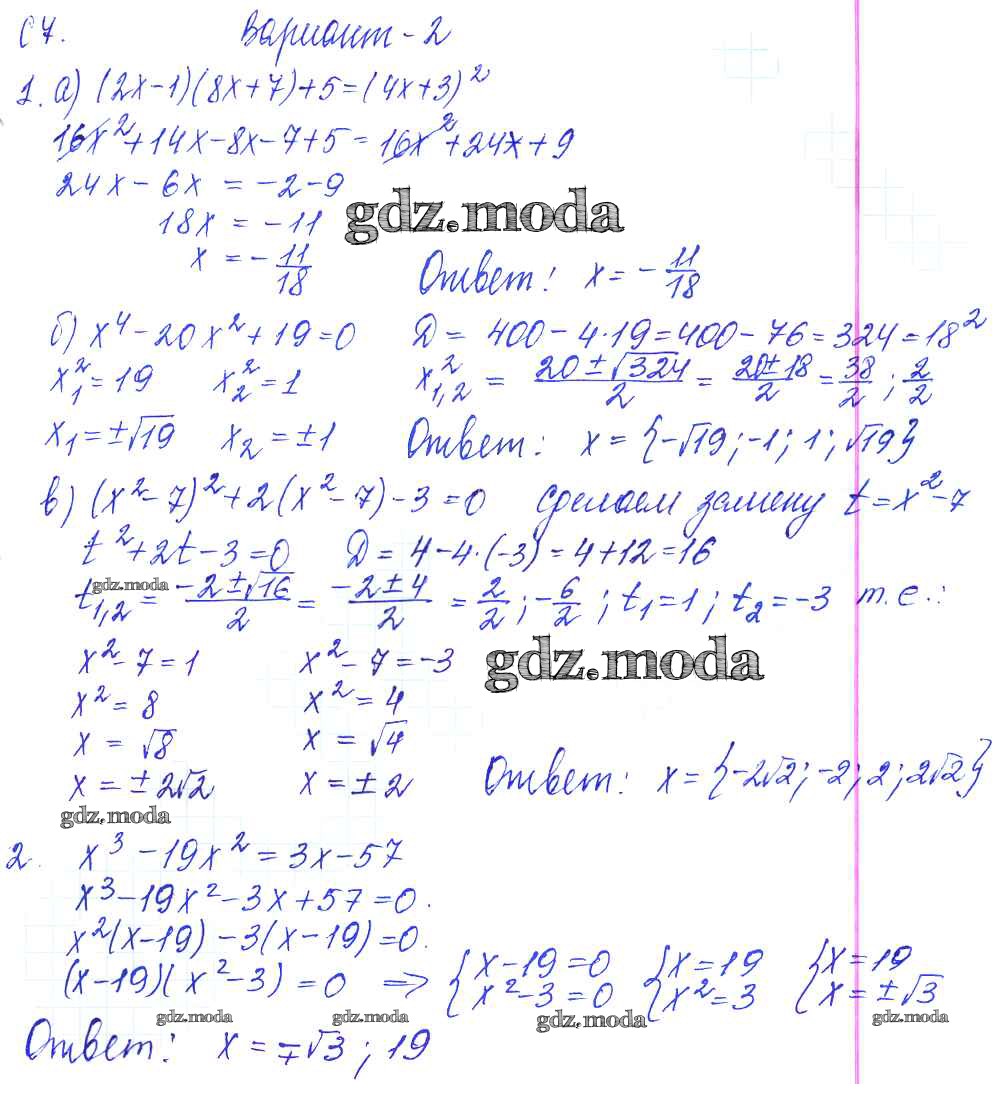 С 7. Вариант - 2
1. а) (2x-1)(8x+7)+5=(4x+3)²
16x²+14x-8x-7+5=16x²+24x+9
24x-6x = -2-9
18x = -11
gdz.moda
x = -11/18 Ответ: x = -11/18
б) x⁴-20x²+19=0 D = 400-4·19=400-76=324=18²
x₁²=19 x₂²=1 x²₁,₂ = (20±√324)/2 = (20±18)/2 = 38/2 ; 2/2
x₁=±√19 x₂=±1 Ответ: x = {-√19; -1; 1; √19}
в) (x²-7)²+2(x²-7)-3=0 сделаем замену t=x²-7
t²+2t-3=0 D = 4-4·(-3)=4+12=16
gdz.moda
t₁,₂ = (-2±√16)/2 = (-2±4)/2 = 2/2 ; -6/2 ; t₁=1 ; t₂=-3 т.е.:
x²-7=1 x²-7=-3
gdz.moda
x²=8 x²=4
x = √8 x = √4
x = ±2√2 x = ±2 Ответ: x = {-2√2; -2; 2; 2√2}
gdz.moda
2. x³-19x²=3x-57
x³-19x²-3x+57=0.
x²(x-19)-3(x-19)=0.
(x-19)(x²-3)=0 => {x-19=0 {x=19 {x=19
{x²-3=0 {x²=3 {x=±√3
gdz.moda gdz.moda gdz.moda gdz.moda
Ответ: x = ∓√3 ; 19